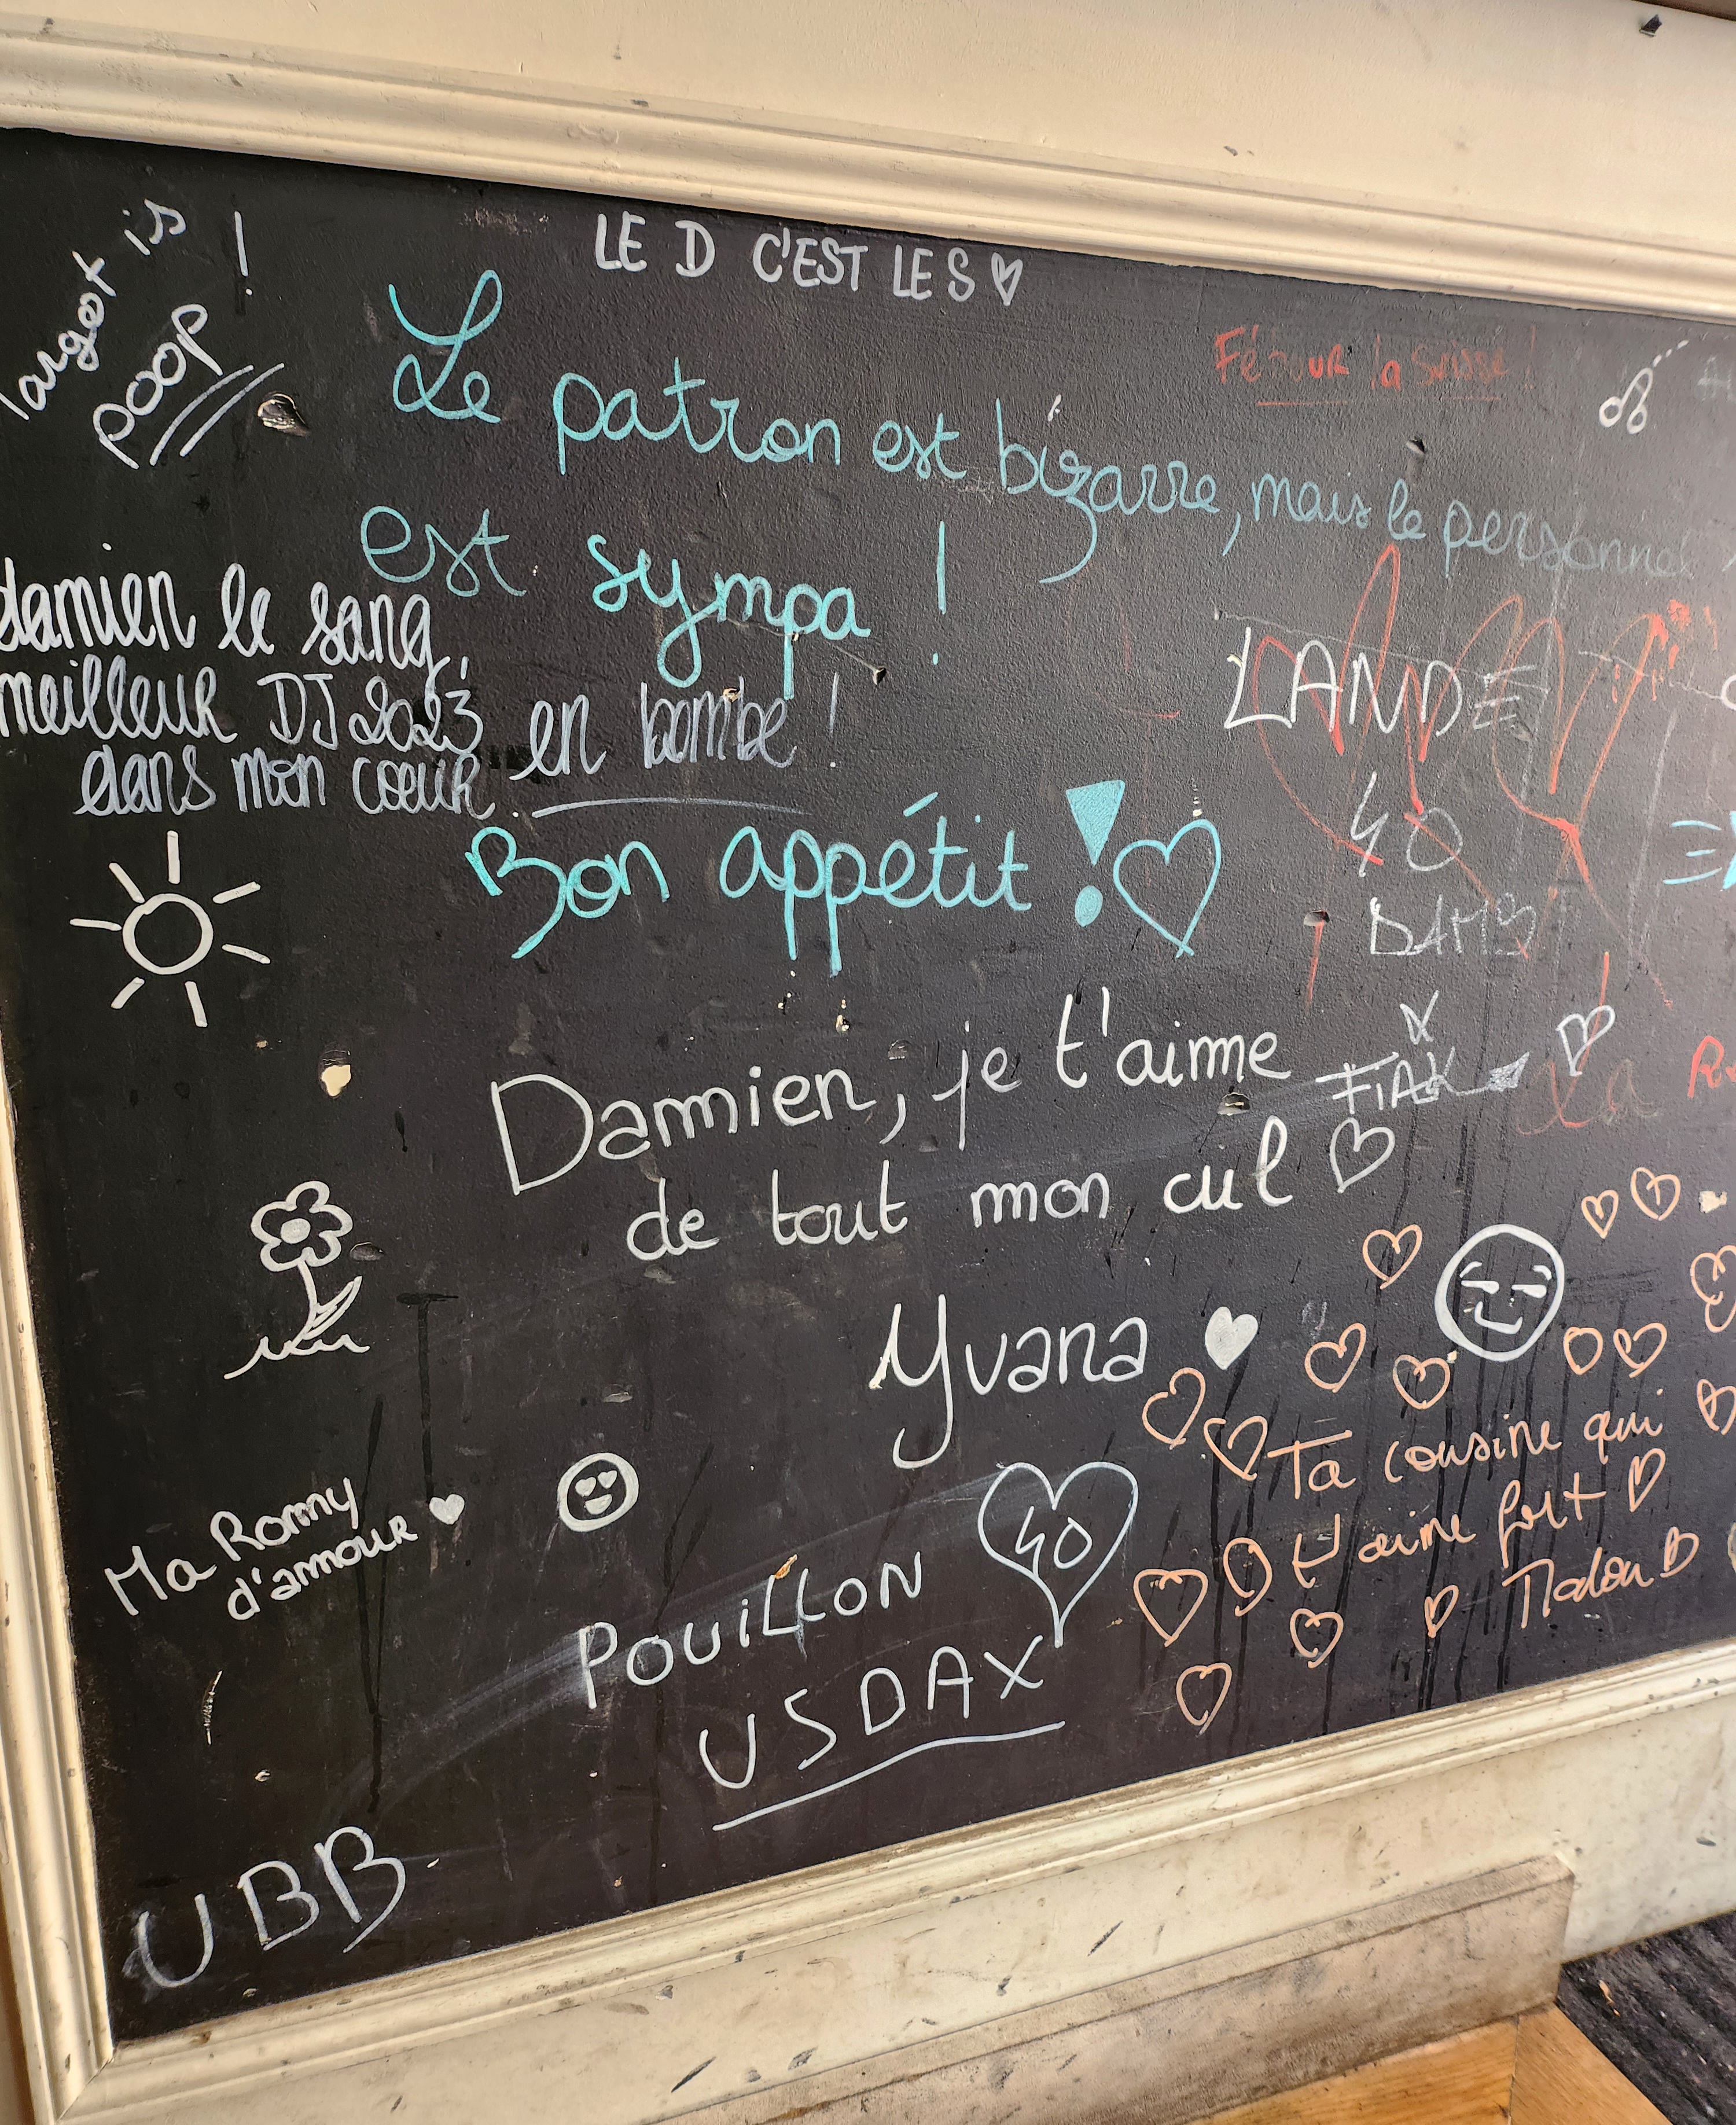 LE D C'EST LES
is
POOP !
la suisse !
Le patron est bizarre, mais le personnel
est sympa !
damien le sang,
meilleur DJ 2023
dans mon coeur
en bombe !
LANDES
40
Bon appétit !
Damien, je t'aime
de tout mon cul
Yvana
Ta cousine qui
t'aime fort
Ma Rommy
d'amour
40
POUILLON
USDAX
UBB